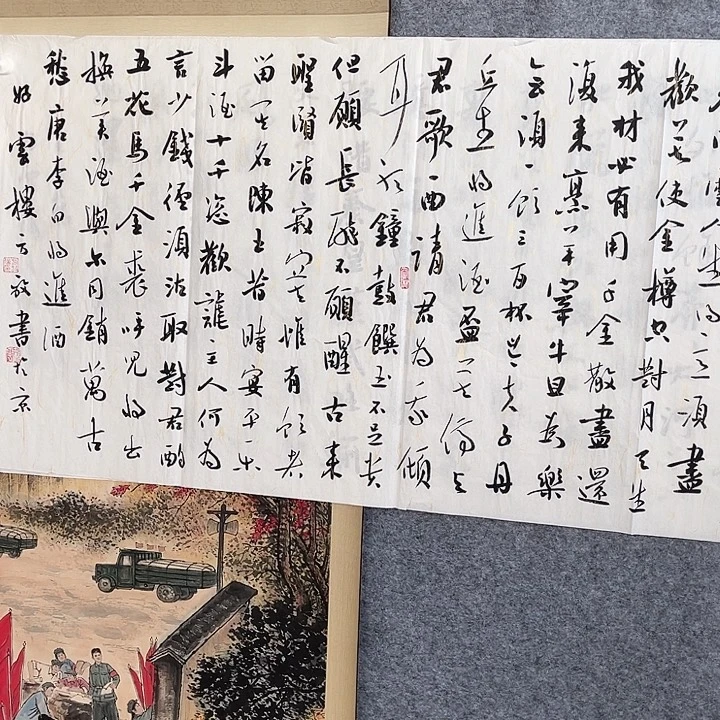 雪人生得意須盡
歡莫使金樽空對月天生
我材必有用千金散盡還
復來烹羊宰牛且為樂
會須一飲三百杯岑夫子丹
丘生將進酒盃莫停與
君歌一曲請君為我傾
耳聽鐘鼓饌玉不足貴
但願長醉不願醒古來
聖賢皆寂寞惟有飲者
留其名陳王昔時宴平樂
斗酒十千恣歡謔主人何為
言少錢徑須沽取對君酌
五花馬千金裘呼兒將出
換美酒與尔同銷萬古
愁唐李白將進酒
雲樓方書於京